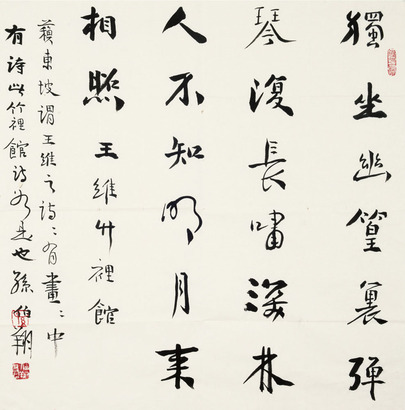 獨坐幽篁裏彈
琴復長嘯深林
人不知明月来
相照 王維竹裡館
蘇東坡謂王維之詩〻有畫〻中
有詩此竹裡館詩是也 孫伯翔